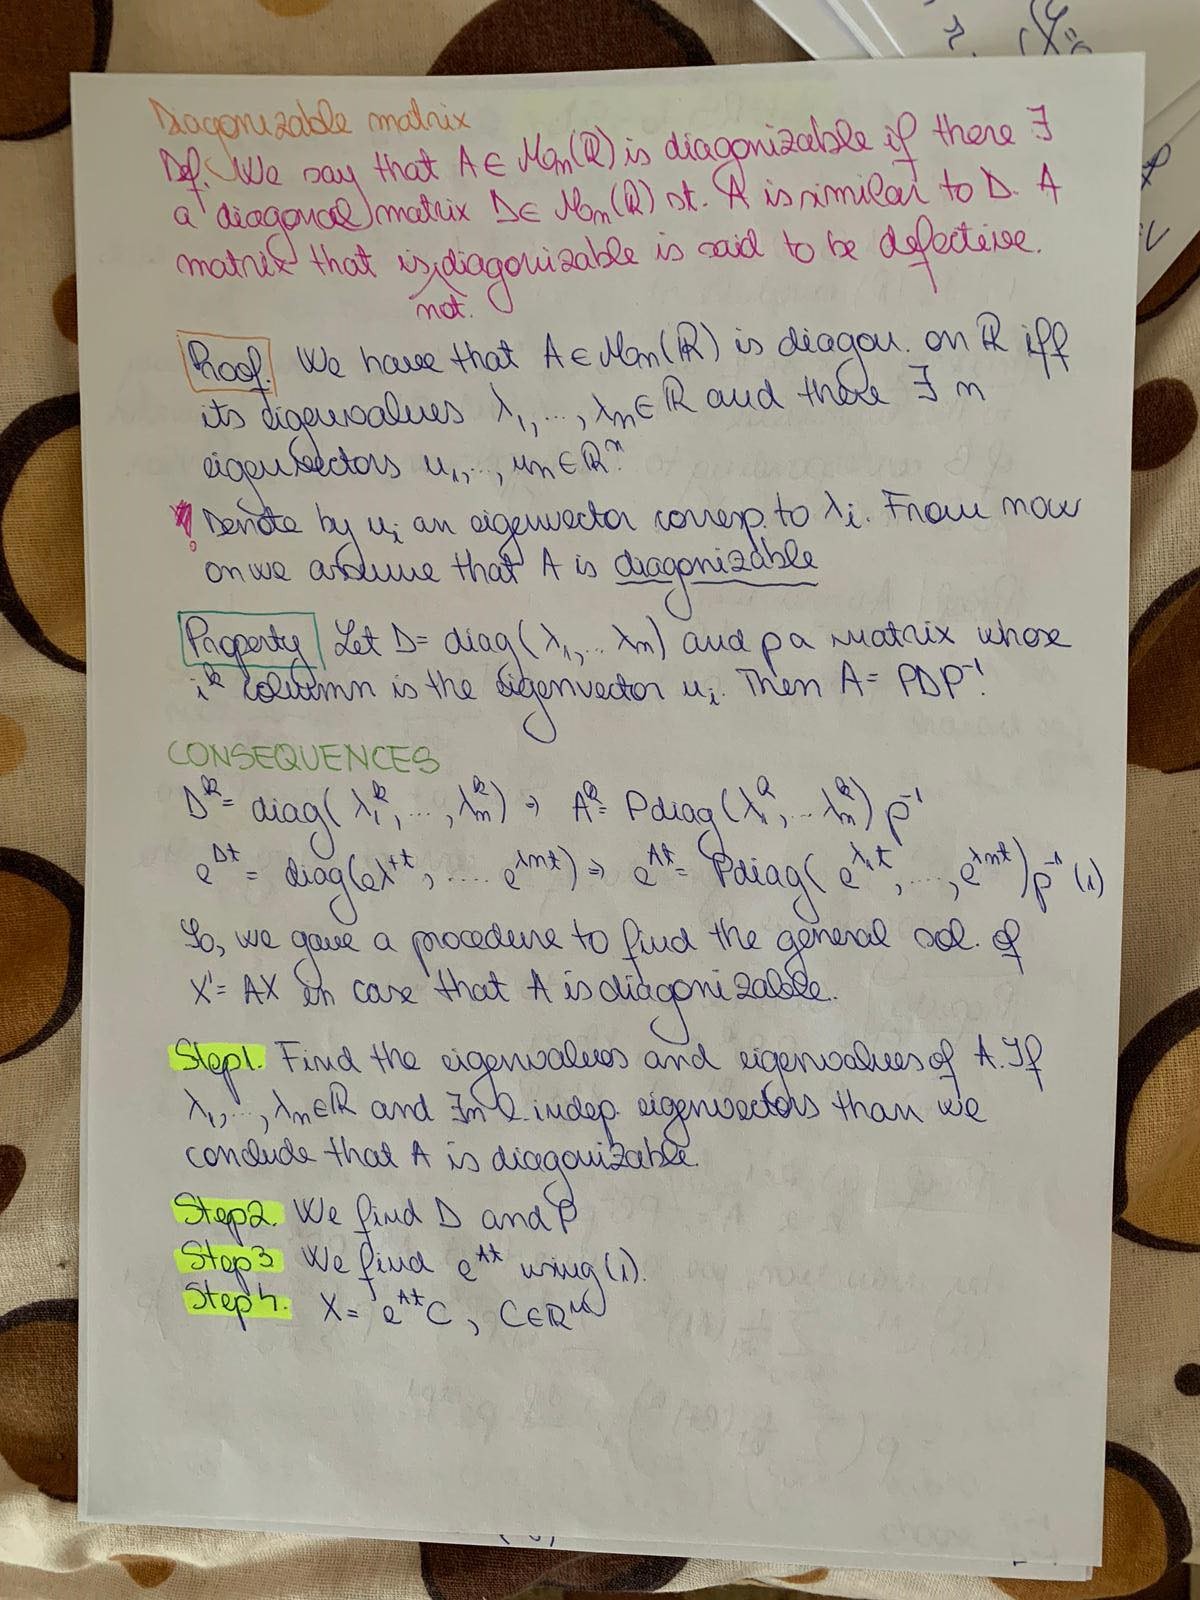 Diagonizable matrix
Def. We say that A ∈ Mn(ℝ) is diagonizable if there ∃
a diagonal matrix D ∈ Mn(ℝ) st. A is similar to D. A
matrix that is diagonizable is said to be defective.
not.
Proof. We have that A ∈ Mn(ℝ) is diagon. on ℝ iff
its eigenvalues λ1, ..., λn ∈ ℝ and there ∃ n
eigenvectors u1, ..., un ∈ ℝⁿ.
! Denote by ui an eigenvector corresp. to λi. From now
on we assume that A is diagonizable
Property Let D = diag(λ1, ... λn) and P a matrix whose
i^k column is the eigenvector ui. Then A = PDP⁻¹.
CONSEQUENCES
D^k = diag(λ1^k, ..., λn^k) ⇒ A^k = Pdiag(λ1^k, ... λn^k) P⁻¹
e^Dt = diag(e^λ1t, .... e^λnt) ⇒ e^At = Pdiag(e^λ1t, ..., e^λnt) P⁻¹ (1)
So, we gave a procedure to find the general sol. of
X' = AX in case that A is diagonizable.
Step1. Find the eigenvalues and eigenvalues of A. If
λ1, ..., λn ∈ ℝ and ∃ n l. indep. eigenvectors than we
conclude that A is diagonizable.
Step2. We find D and P
Step3 We find e^At using (1).
Step4. X = e^At C, C ∈ ℝⁿ